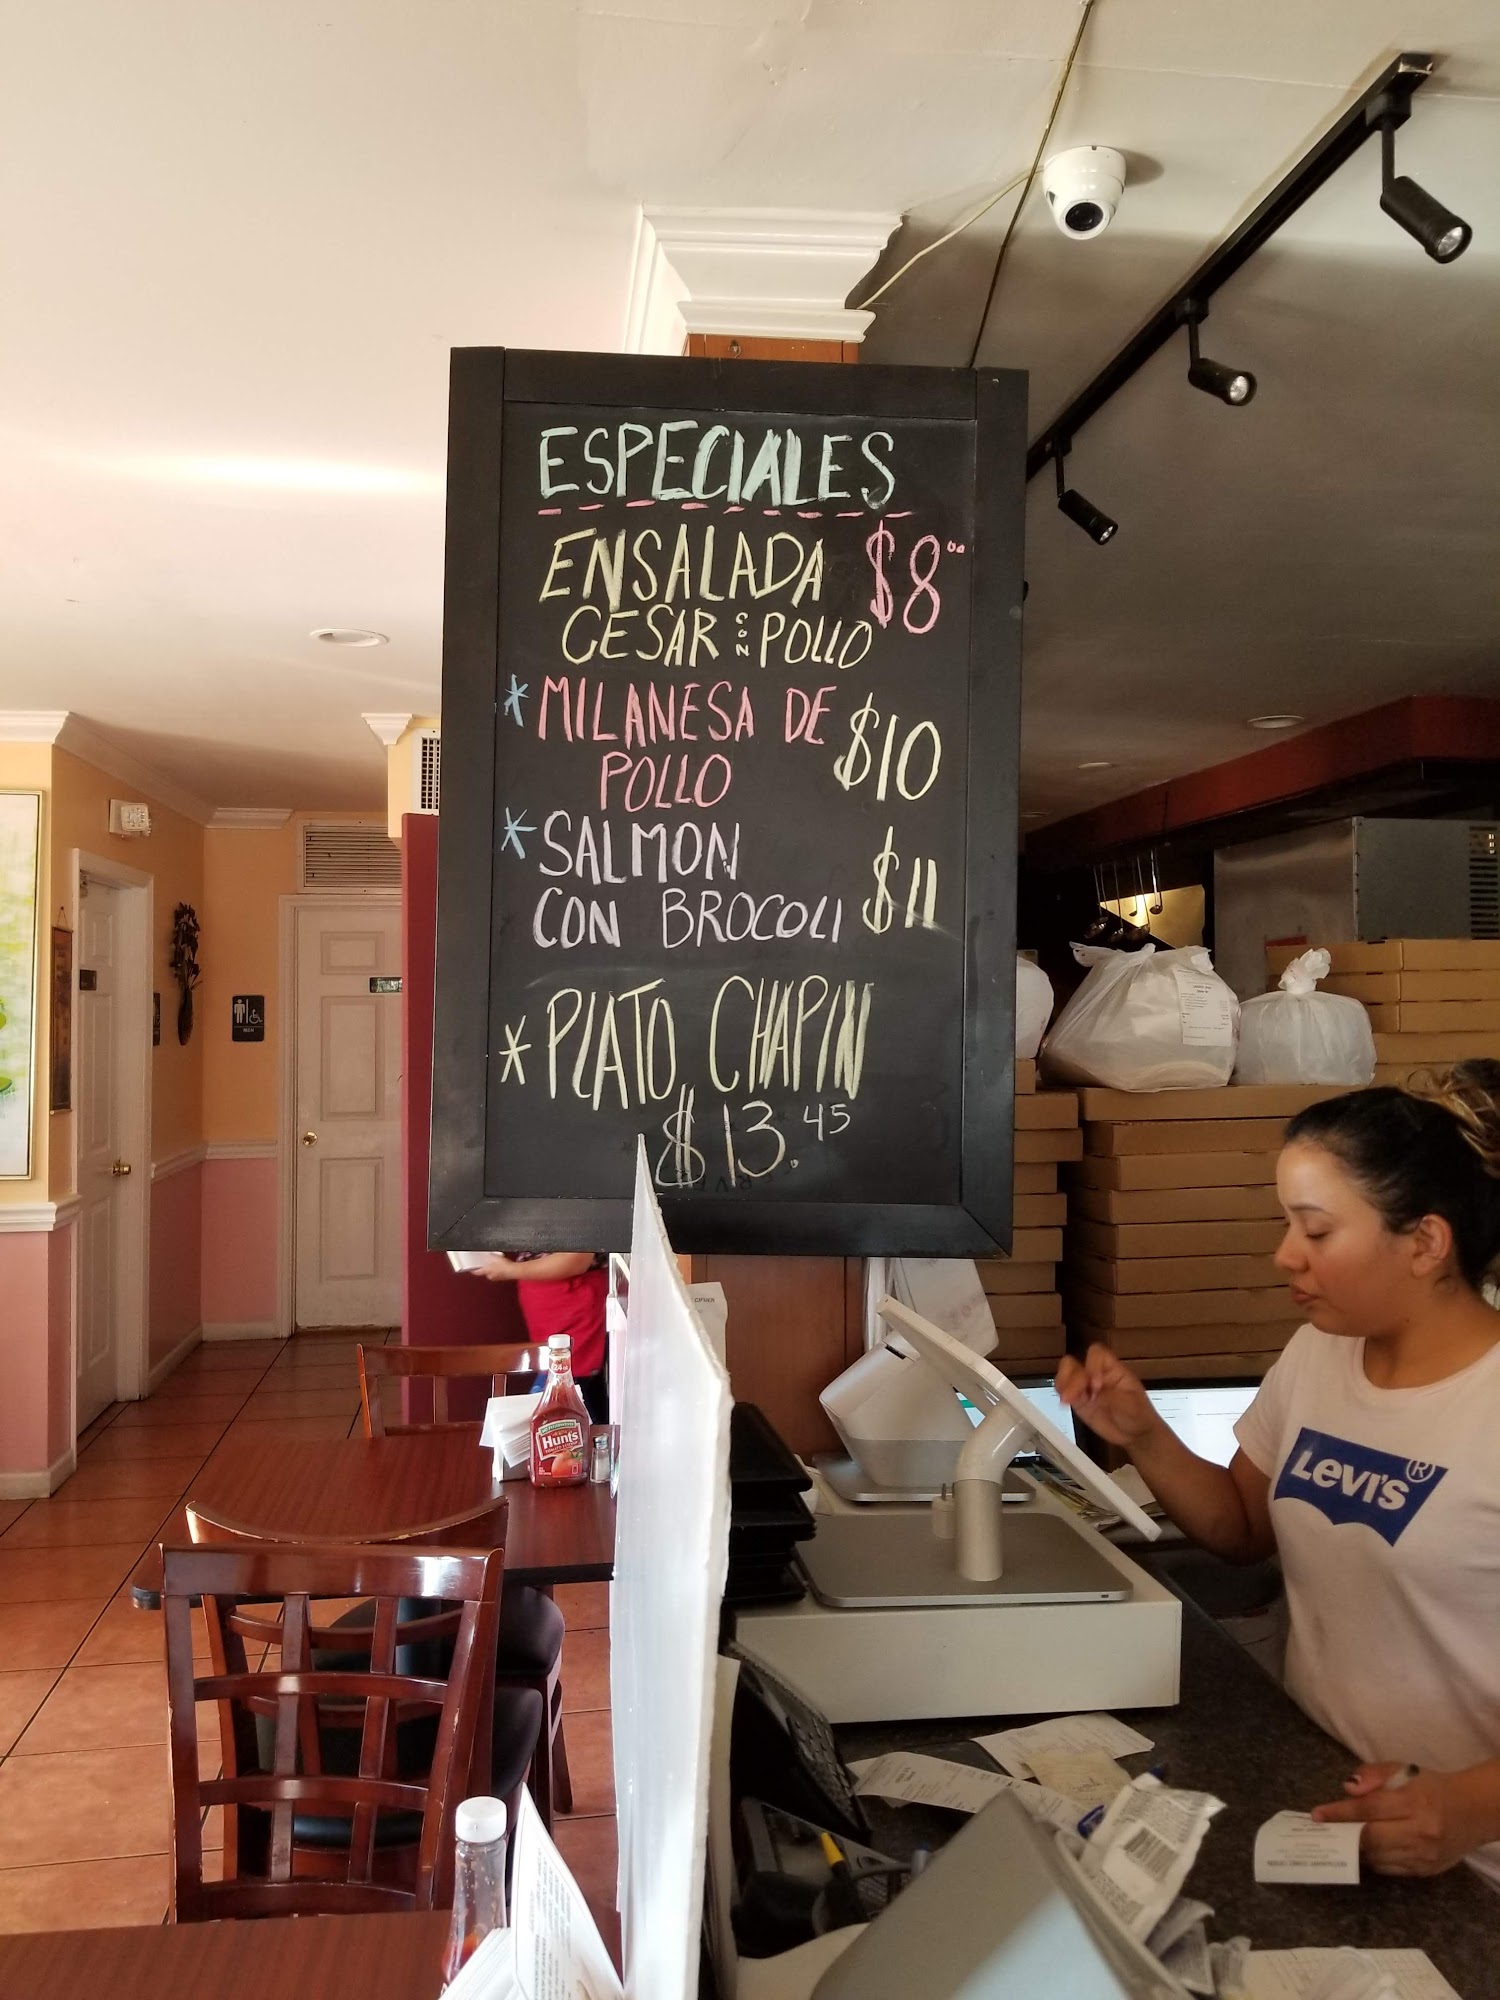 ESPECIALES
ENSALADA $8.00
CESAR CON POLLO
* MILANESA DE
POLLO $10
* SALMON
CON BROCOLI $11
* PLATO CHAPIN
$13.45
MEN
24 oz
Hunt's
LEVI'S®